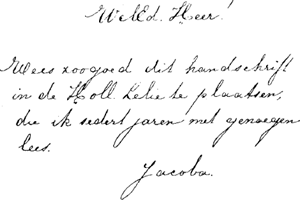 WelEd. Heer!
Wees zoo goed dit handschrift
in de Holl. Lelie te plaatsen,
die ik sedert jaren met genoegen
lees.
Jacoba.